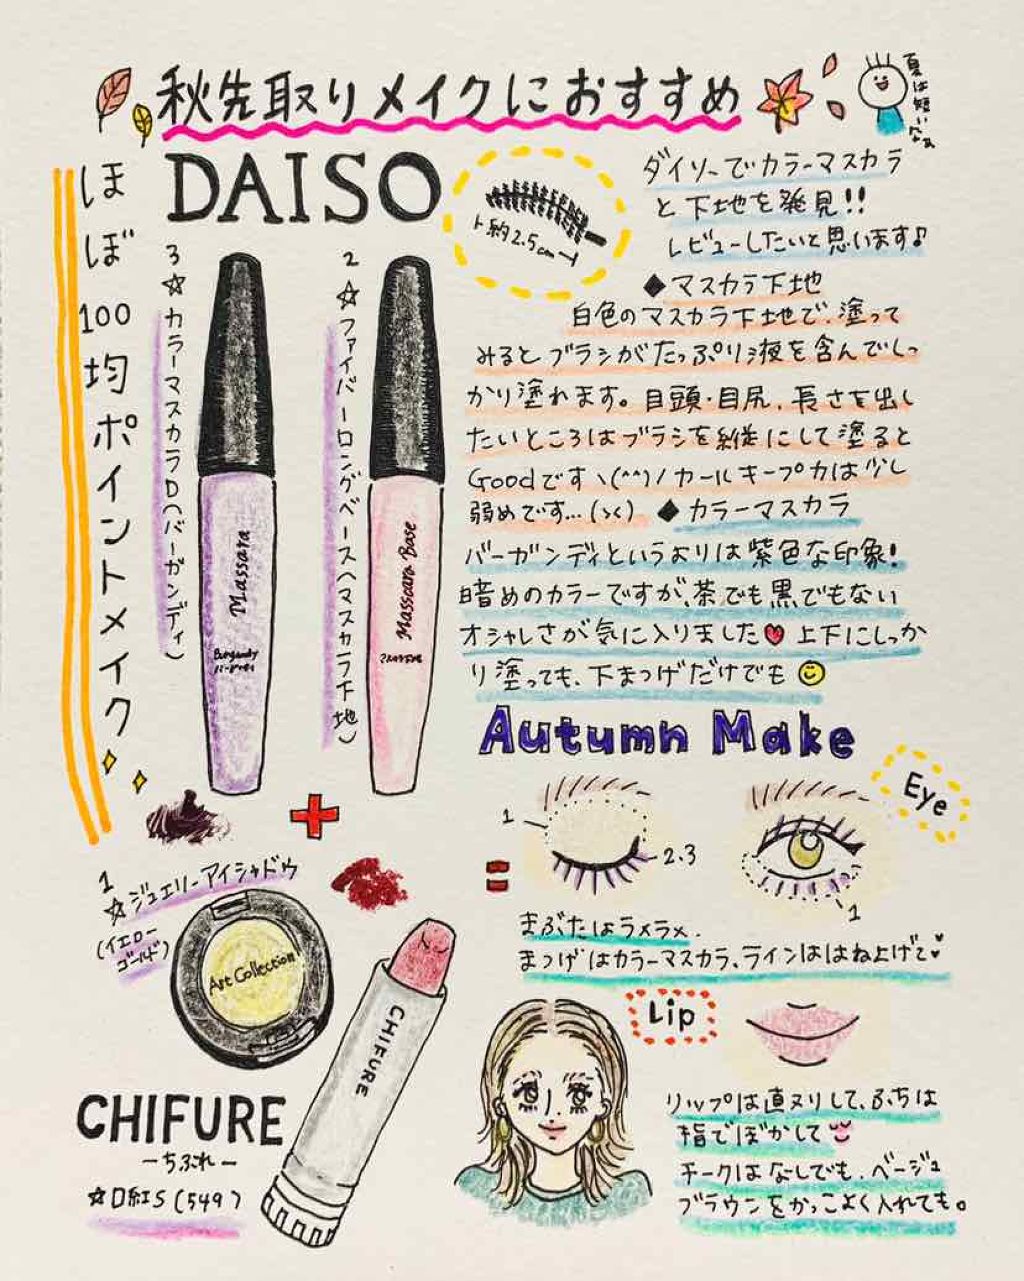 秋先取りメイクにおすすめ
夏は短いなぁ
ほぼ100均ポイントメイク
DAISO
約2.5cm
ダイソーでカラーマスカラ
と下地を発見!!
レビューしたいと思います♪
◆マスカラ下地
白色のマスカラ下地で、塗って
みるとブラシがたっぷり液を含んでしっ
かり塗れます。目頭・目尻、長さを出し
たいところはブラシを縦にして塗ると
Goodですヽ(^^)ノカールキープ力は少し
弱めです…(><) ◆カラーマスカラ
バーガンディというよりは紫色な印象!
暗めのカラーですが、茶でも黒でもない
オシャレさが気に入りました♥上下にしっか
り塗っても、下まつげだけでも
3☆カラーマスカラD(バーガンディ)
Mascara
Burgundy
2☆ファイバーロングベース(マスカラ下地)
Mascara Base
+
=
Autumn Make
Eye
1
2.3
1
まぶたはラメラメ.
まつげはカラーマスカラ、ラインははね上げて♥
1
☆ジュエリーアイシャドウ
(イエロー
ゴールド)
Art Collection
CHIFURE
CHIFURE
-ちふれ-
☆口紅S(549)
Lip
リップは直ヌリして、ふちは
指でぼかして
チークはなしでも、ベージュ
ブラウンをかっこよく入れても。